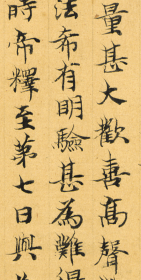 量甚大歡喜高聲
法希有明驗甚為難得
時帝釋至第七日與